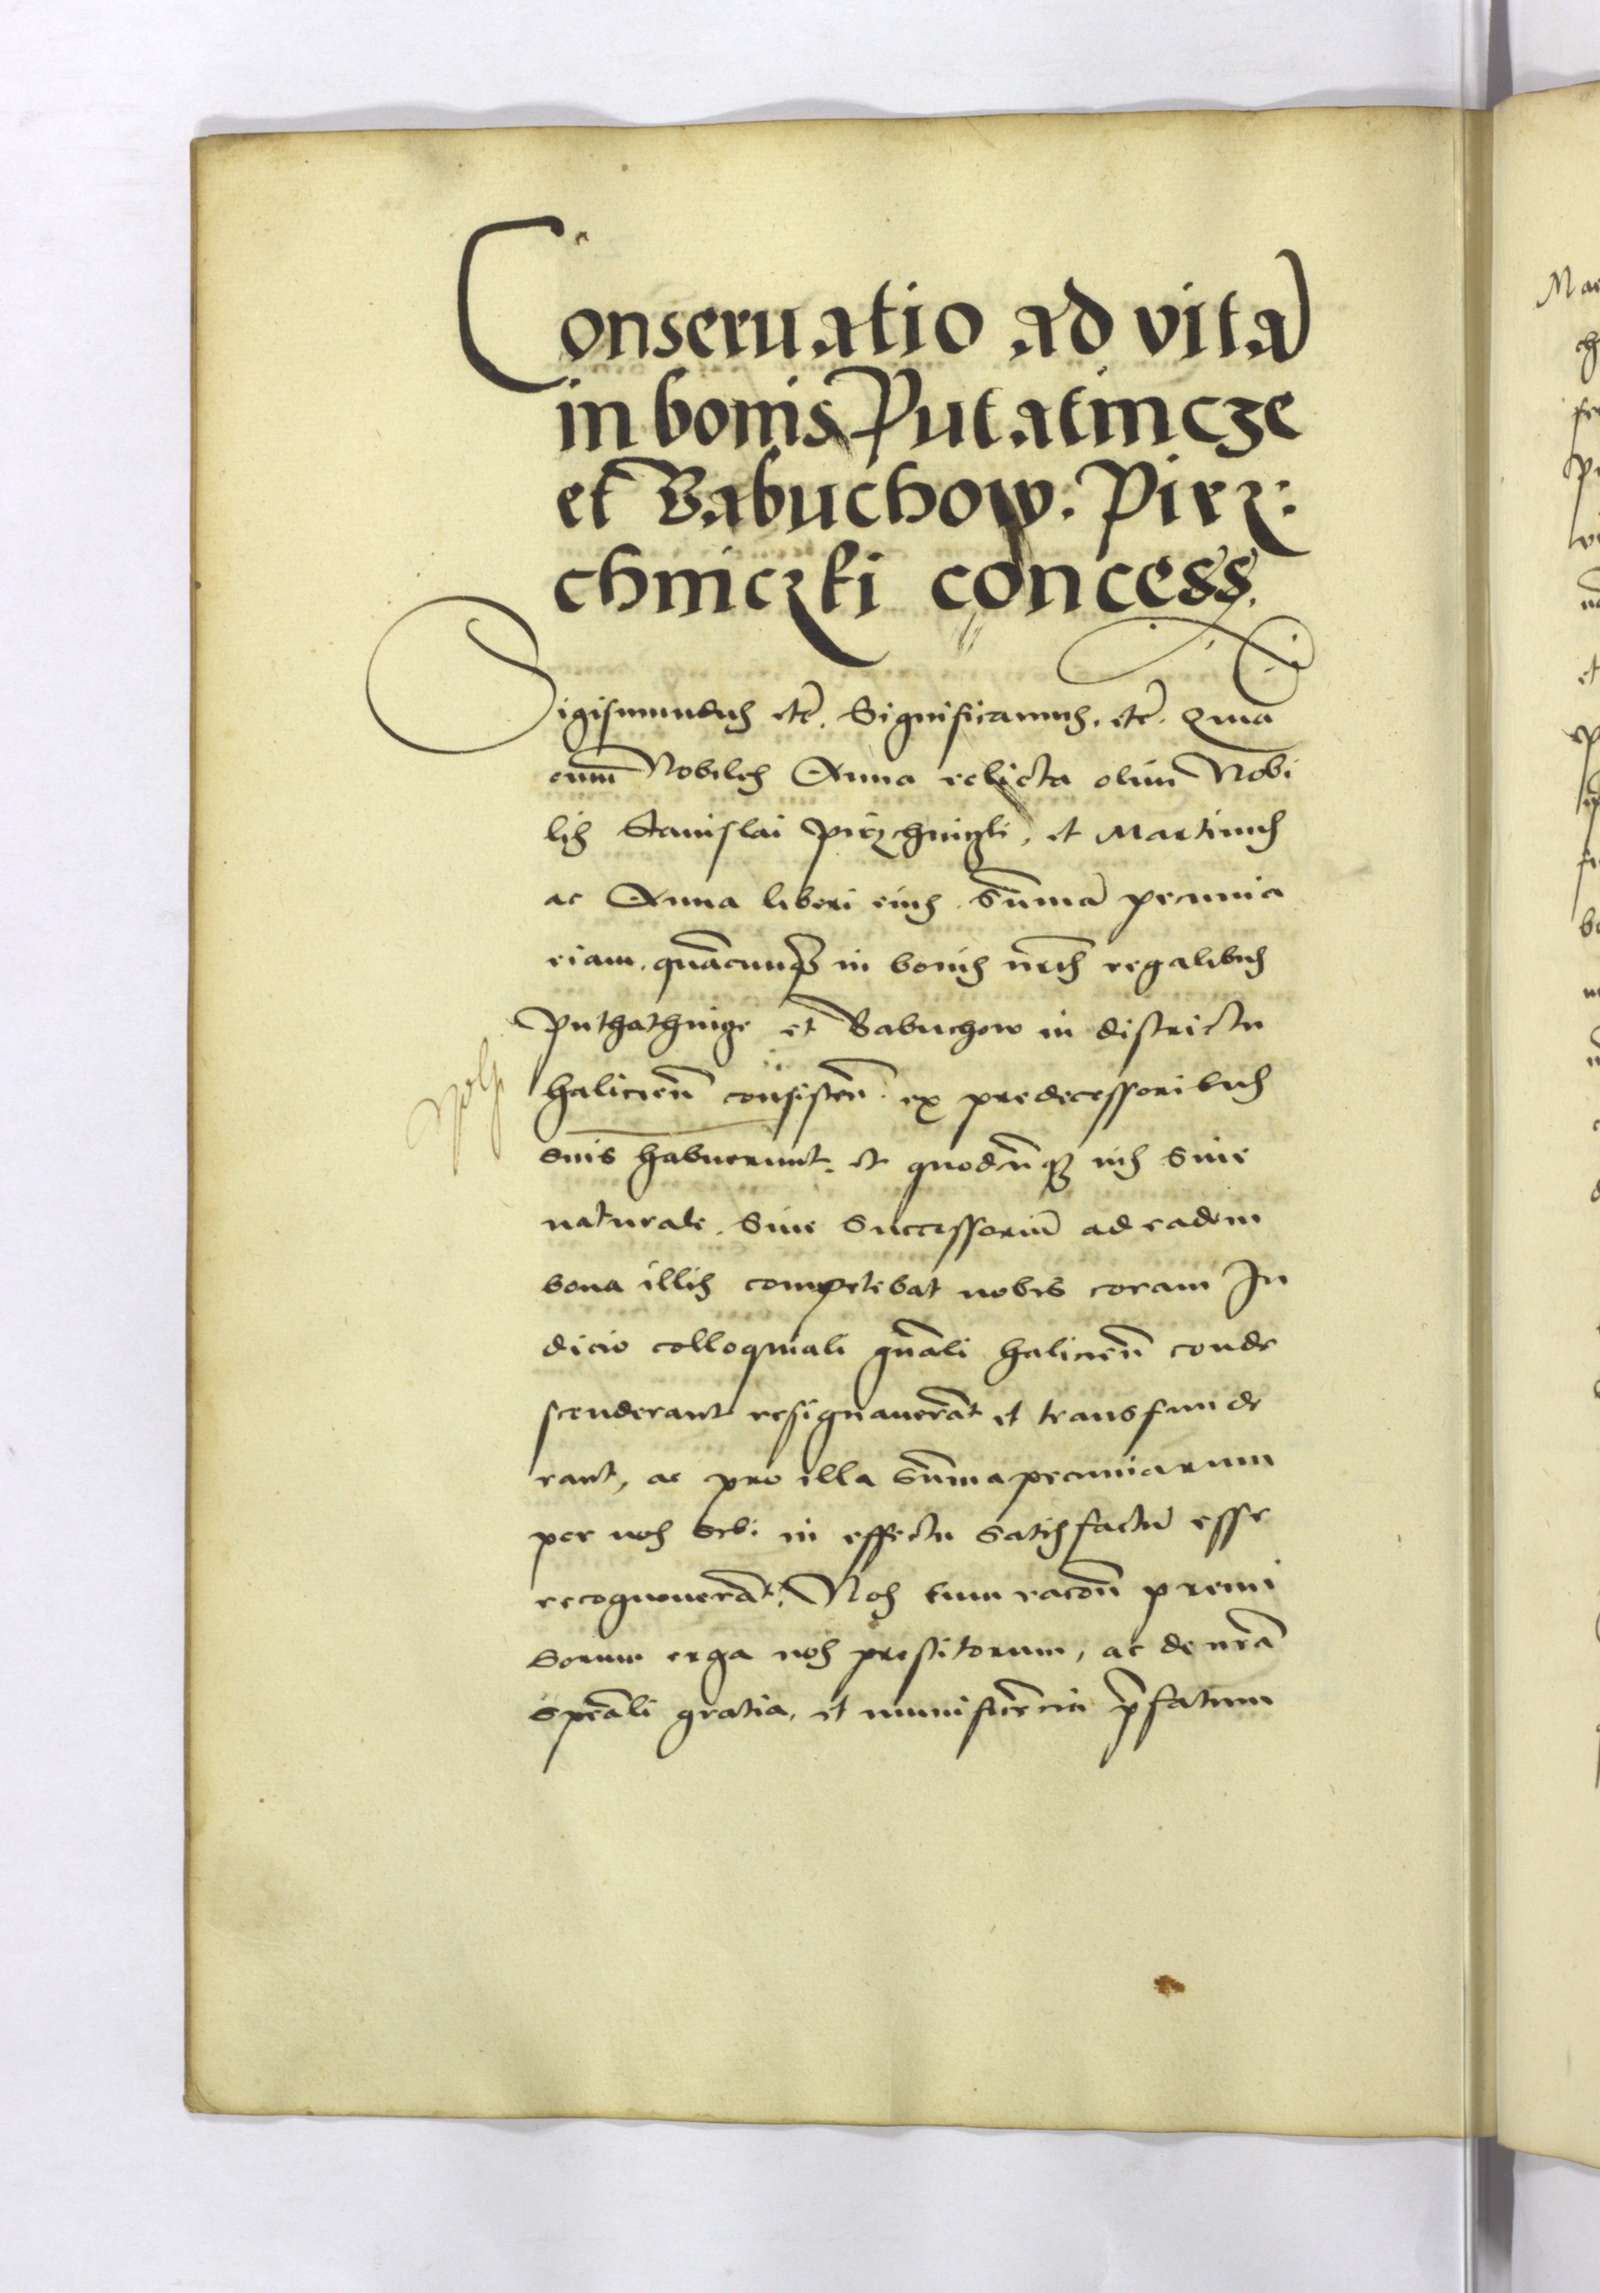 Conseruatio ad vitā
in bonis Putatincze
et Babuchow. Pirz:
chniczki concess.
Sigismundus etc̄. Significamus. etc̄. Quia
cum Nobiles Anna relicta olim Nobi
lis Stanislai Pirzchniczki, et Martinus
ac Anna liberi eius summā pecunia
riam. quācunqз in bonis nr̄is regalibus
Puthathnicze et Babuchow in districtu
halicien̄ consisten̄. ex predecessoribus
suis habuerunt. et quodcūqз ius siue
naturale. siue successoriū ad eadem
bona illis competebat nobis coram Ju
dicio colloquiali gn̄ali halicien̄ conde
scenderant resignauerāt et transfunde
rant, ac pro illa summa pecuniarum
per nos sibi in effectu satisfactū esse
recognouerāt. Nos tum racōn premi
sorum erga nos prestitorum, ac de nrā
speāli gratia, et munificēcia p̄fatum